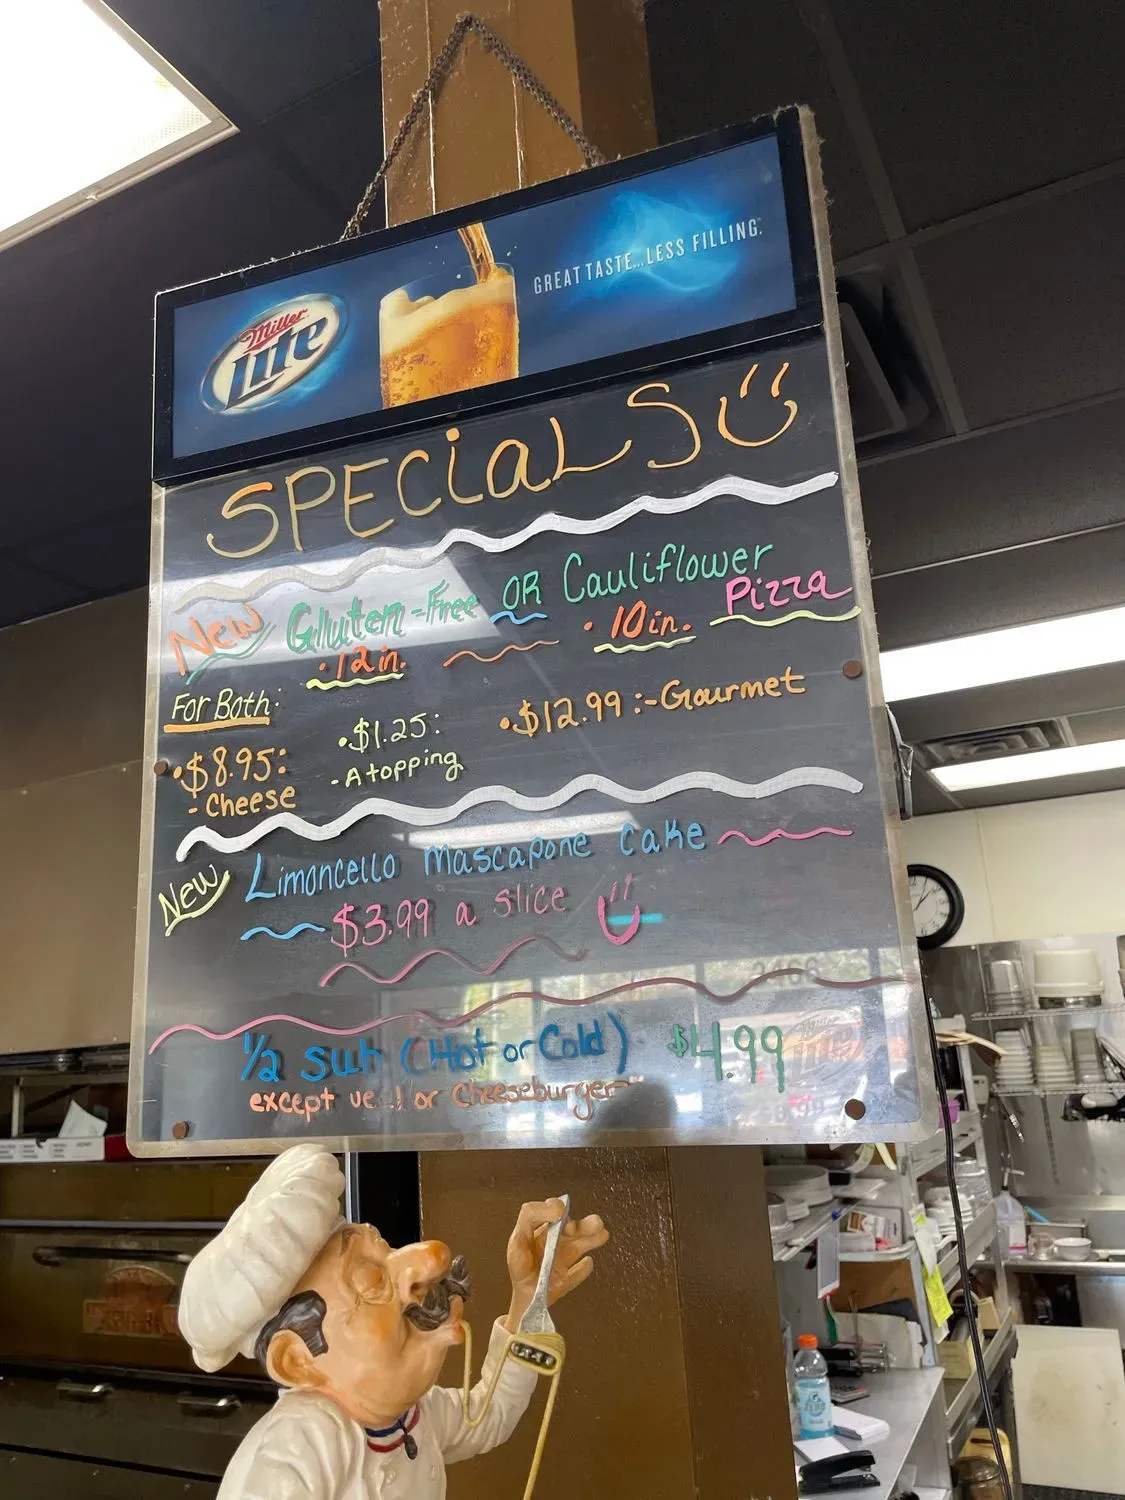 Miller
Lite
GREAT TASTE...LESS FILLING.
SPECiaLS
New Gluten-Free OR Cauliflower Pizza
• 12 in. • 10 in.
For Both:
• $8.95:
- Cheese
• $1.25:
- A topping
• $12.99:-Gourmet
New Limoncello mascapone cake
$3.99 a slice
1/2 Sub (Hot or Cold) $4.99
except veal or Cheeseburger
ZERO